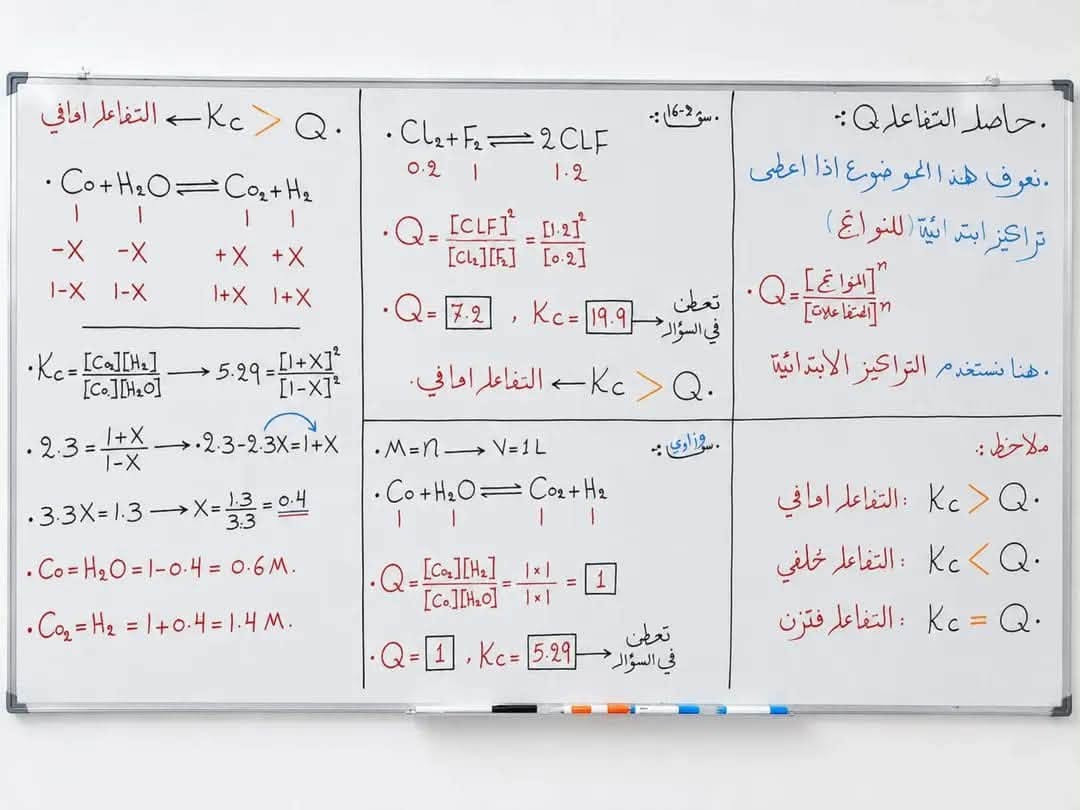 .حاصل التفاعل Q:
.نعوف هذا الموضوع اذا اعطى
تراكيز ابتدائية (للنواتج)
.Q=[النواتج]ⁿ/[المتفاعلات]ⁿ
.هنا نستخدم التراكيز الابتدائية
ملاحظ:
Kc > Q. : التفاعل امافي
Kc < Q. : التفاعل خلفي
Kc = Q. : التفاعل فتزن
.سؤ16-2:
.Cl₂+F₂ ⇌ 2CLF
0.2 1 1.2
.Q=[CLF]²/[Cl₂][F₂]=[1.2]²/[0.2]
.Q=7.2 , Kc=19.9 → تعطن في السؤال
.التفاعل امافي ← Kc > Q.
.سؤ وزاوي:
.M=n → V=1L
.Co+H₂O ⇌ Co₂+H₂
1 1 1 1
.Q=[Co₂][H₂]/[Co.][H₂O]=1×1/1×1=1
.Q=1 , Kc=5.29 → تعطن في السؤال
التفاعل امافي ← Kc > Q.
.Co+H₂O ⇌ Co₂+H₂
1 1 1 1
-X -X +X +X
1-X 1-X 1+X 1+X
.Kc=[Co₂][H₂]/[Co.][H₂O] → 5.29=[1+X]²/[1-X]²
.2.3=1+X/1-X → .2.3-2.3X=1+X
.3.3X=1.3 → X=1.3/3.3=0.4
.Co=H₂O=1-0.4=0.6M.
.Co₂=H₂=1+0.4=1.4M.